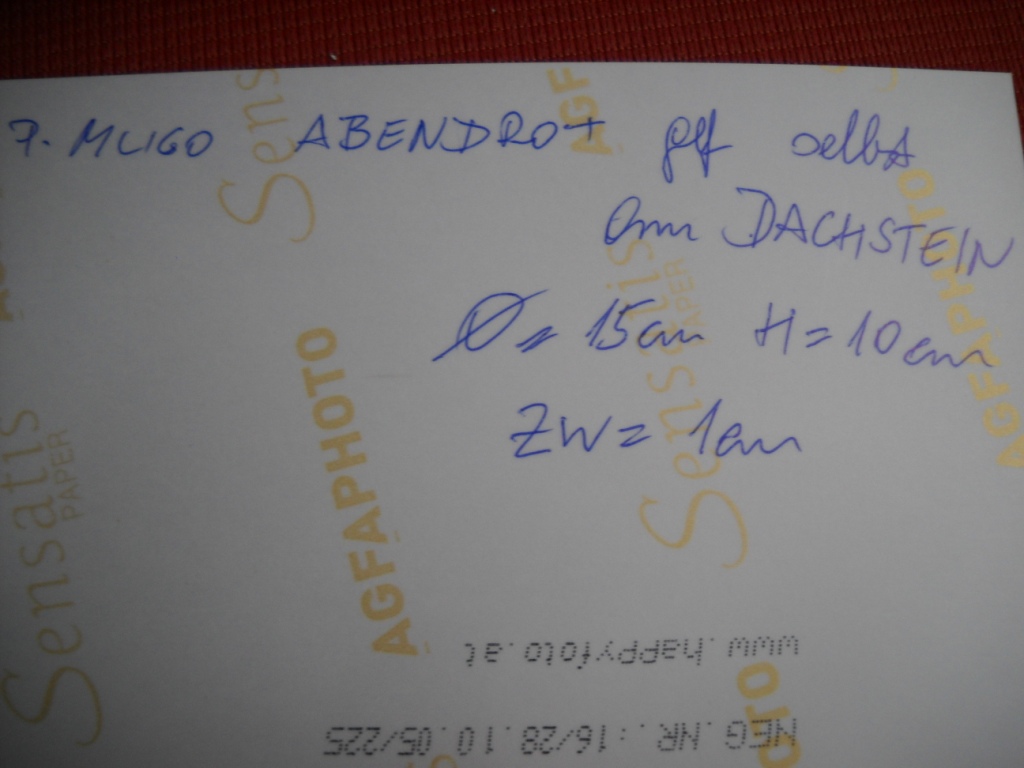 7. MUGO ABENDROT gef selbst
am DACHSTEIN
Ø = 15cm H = 10cm
ZW = 1cm
Sensatis
PAPER
AGFAPHOTO
Sens
AGF
Sensatis
PAPER
AGFAPHOTO
OTO
www.happyfoto.at
NEG.NR.:16/28.10.05/225